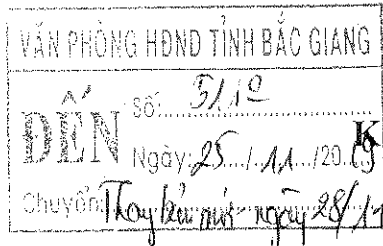 VĂN PHÒNG HĐND TỈNH BẮC GIANG
ĐẾN
Số:
Ngày: 25/11/2019
K
Chuyển: Thay bản mới ngày 28/11